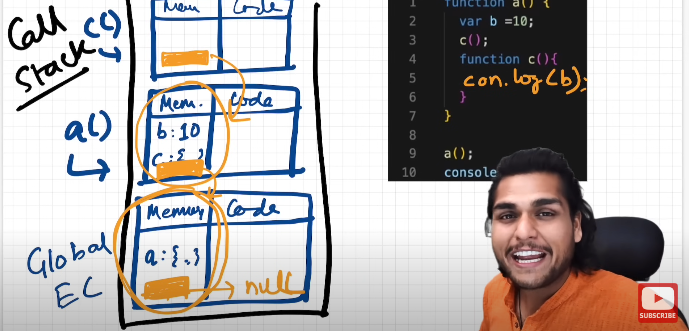 Call
Stack
c()
Mem
Code
a()
Mem.
Code
b:10
c:{..}
Global
EC
Memory
Code
a:{..}
null
1 function a() {
2 var b =10;
3 c();
4 function c(){
5 con.log(b);
6 }
7 }
8
9 a();
10 console
SUBSCRIBE